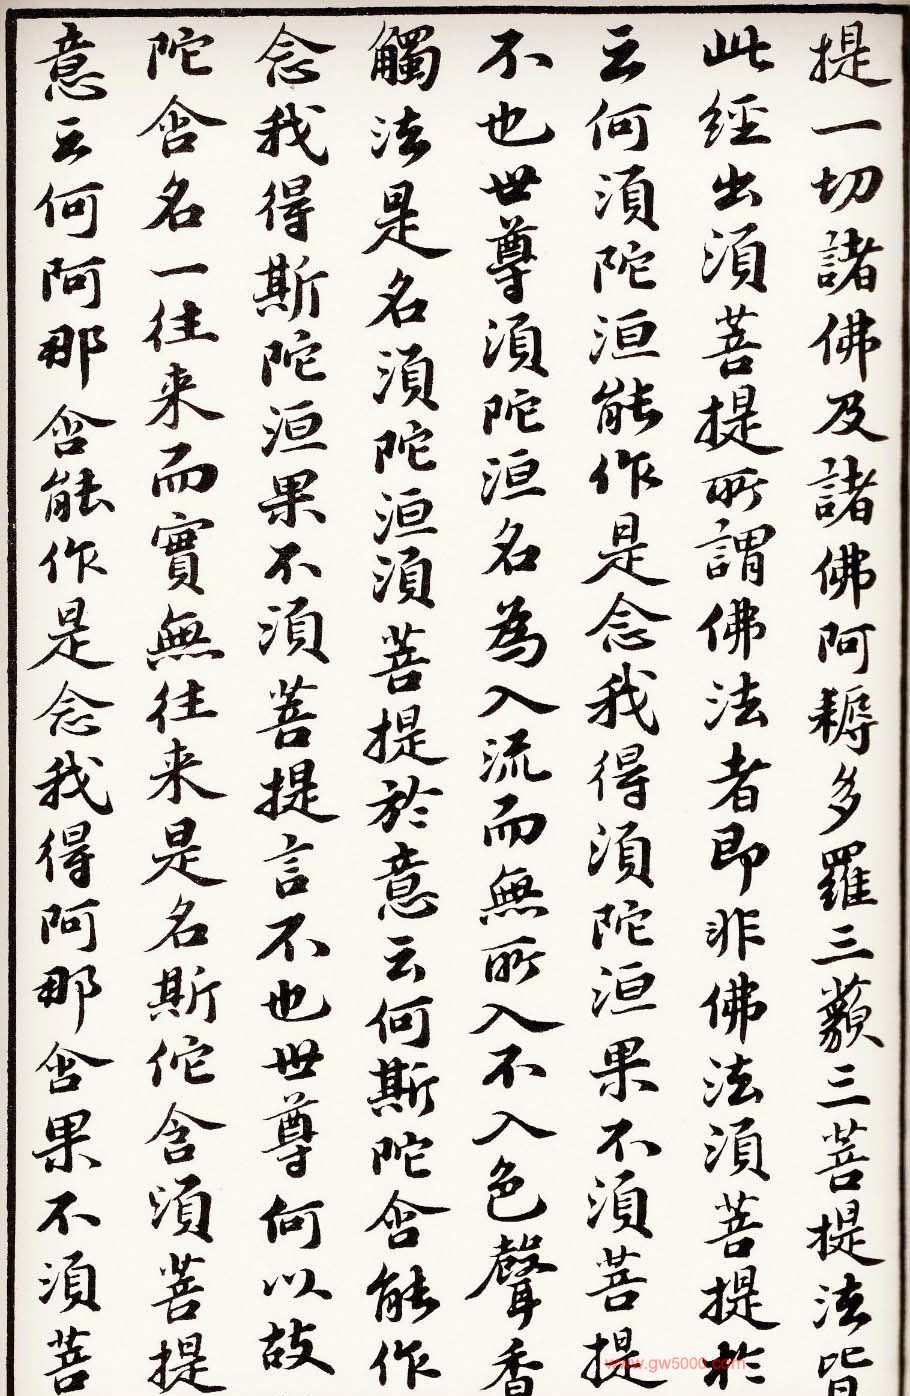 提一切諸佛及諸佛阿耨多羅三藐三菩提法皆
此經出須菩提所謂佛法者即非佛法須菩提於
云何須陀洹能作是念我得須陀洹果不須菩提
不也世尊須陀洹名為入流而無所入不入色聲香
觸法是名須陀洹須菩提於意云何斯陀含能作
念我得斯陀洹果不須菩提言不也世尊何以故
陀含名一往来而實無往来是名斯佗含須菩提
意云何阿那含能作是念我得阿那含果不須菩
www.gw5000.com